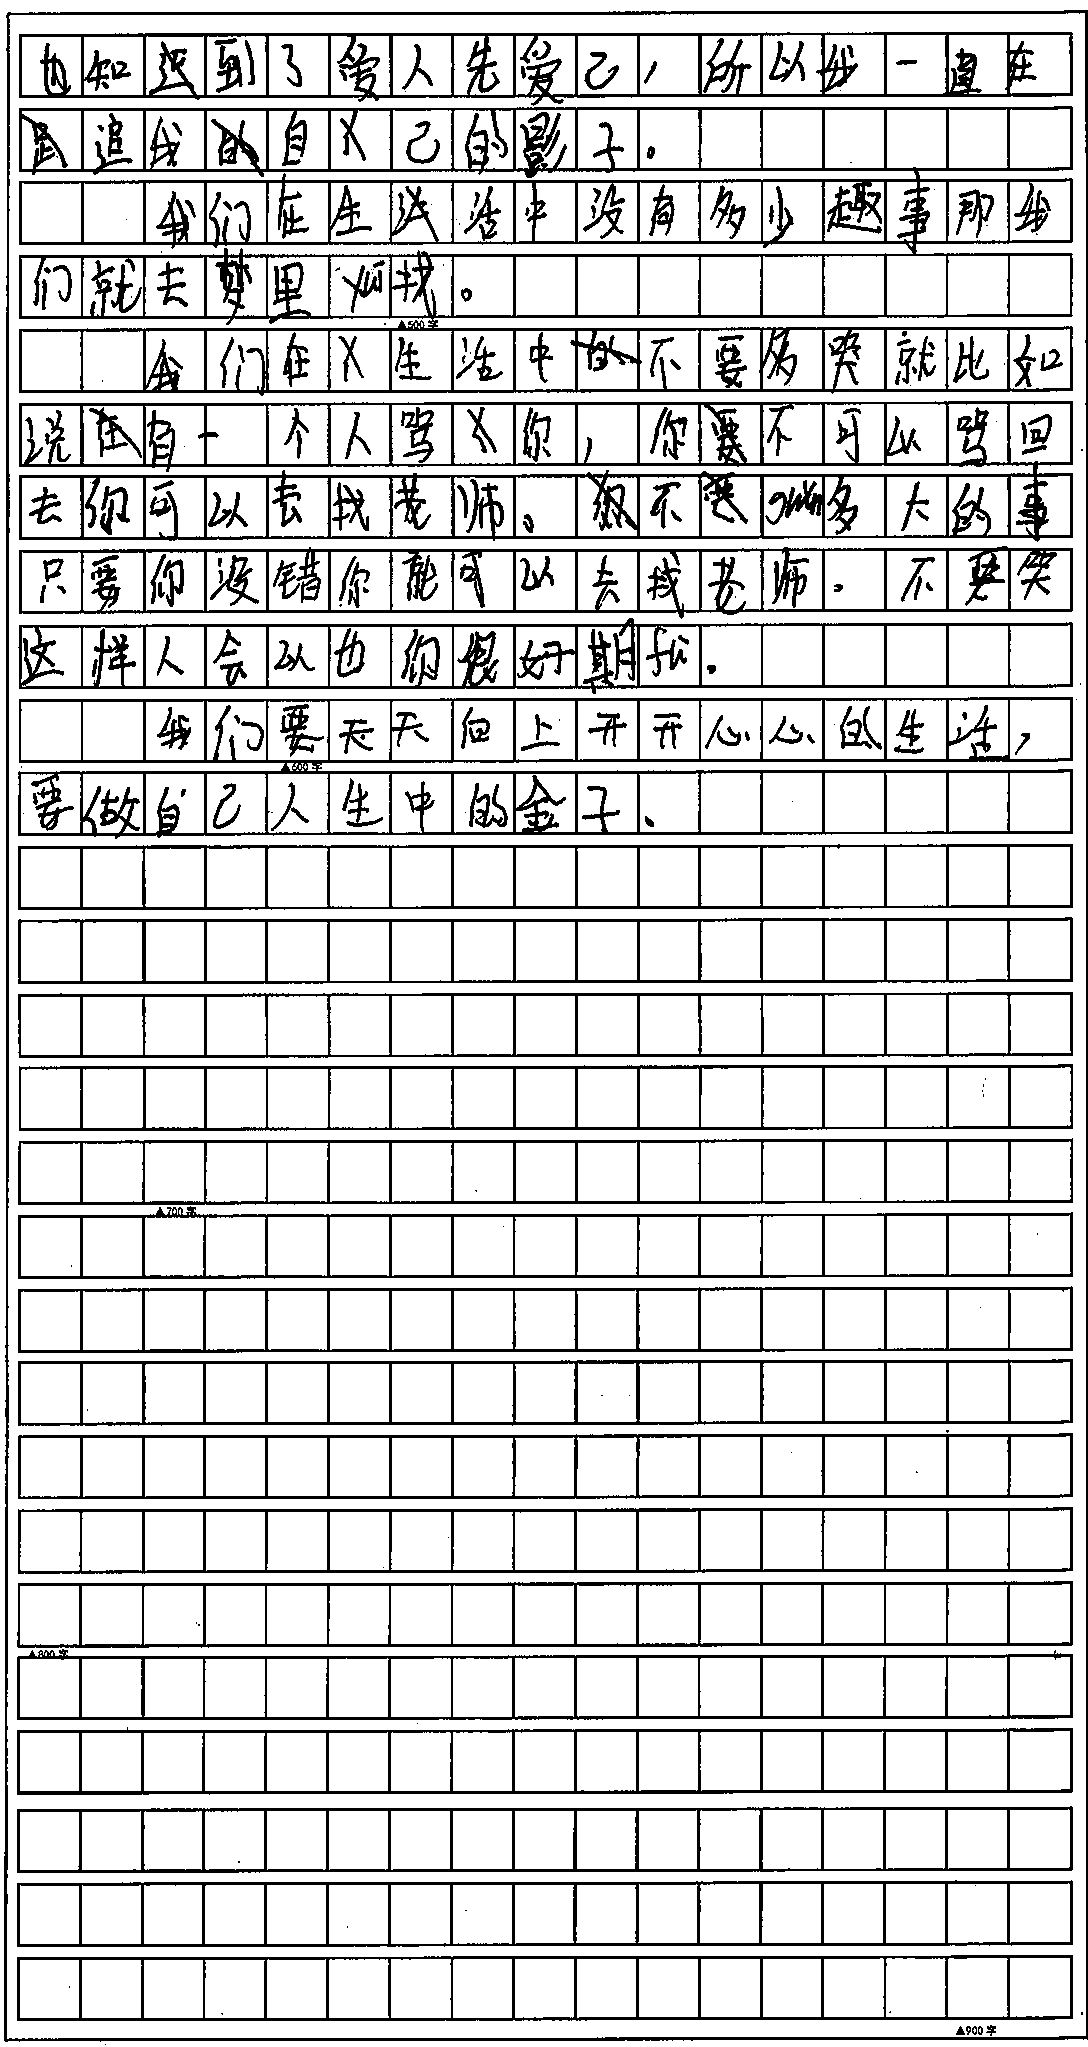 也知到了爱人先爱己，所以我一直在
追我自己的影子。
我们在生活中没有多少趣事那我
们就去梦里找。
▲500字
我们在生活中不要多哭就比如
说有一个人骂你，你不可以骂回
去你可以去找老师。不要多大的事
只要你没错你就可以去找老师。不要哭
这样人会以也你很好期付。
我们要天天向上开开心心的生活，
▲600字
要做自己人生中的金子。
▲700字
▲800字
▲900字